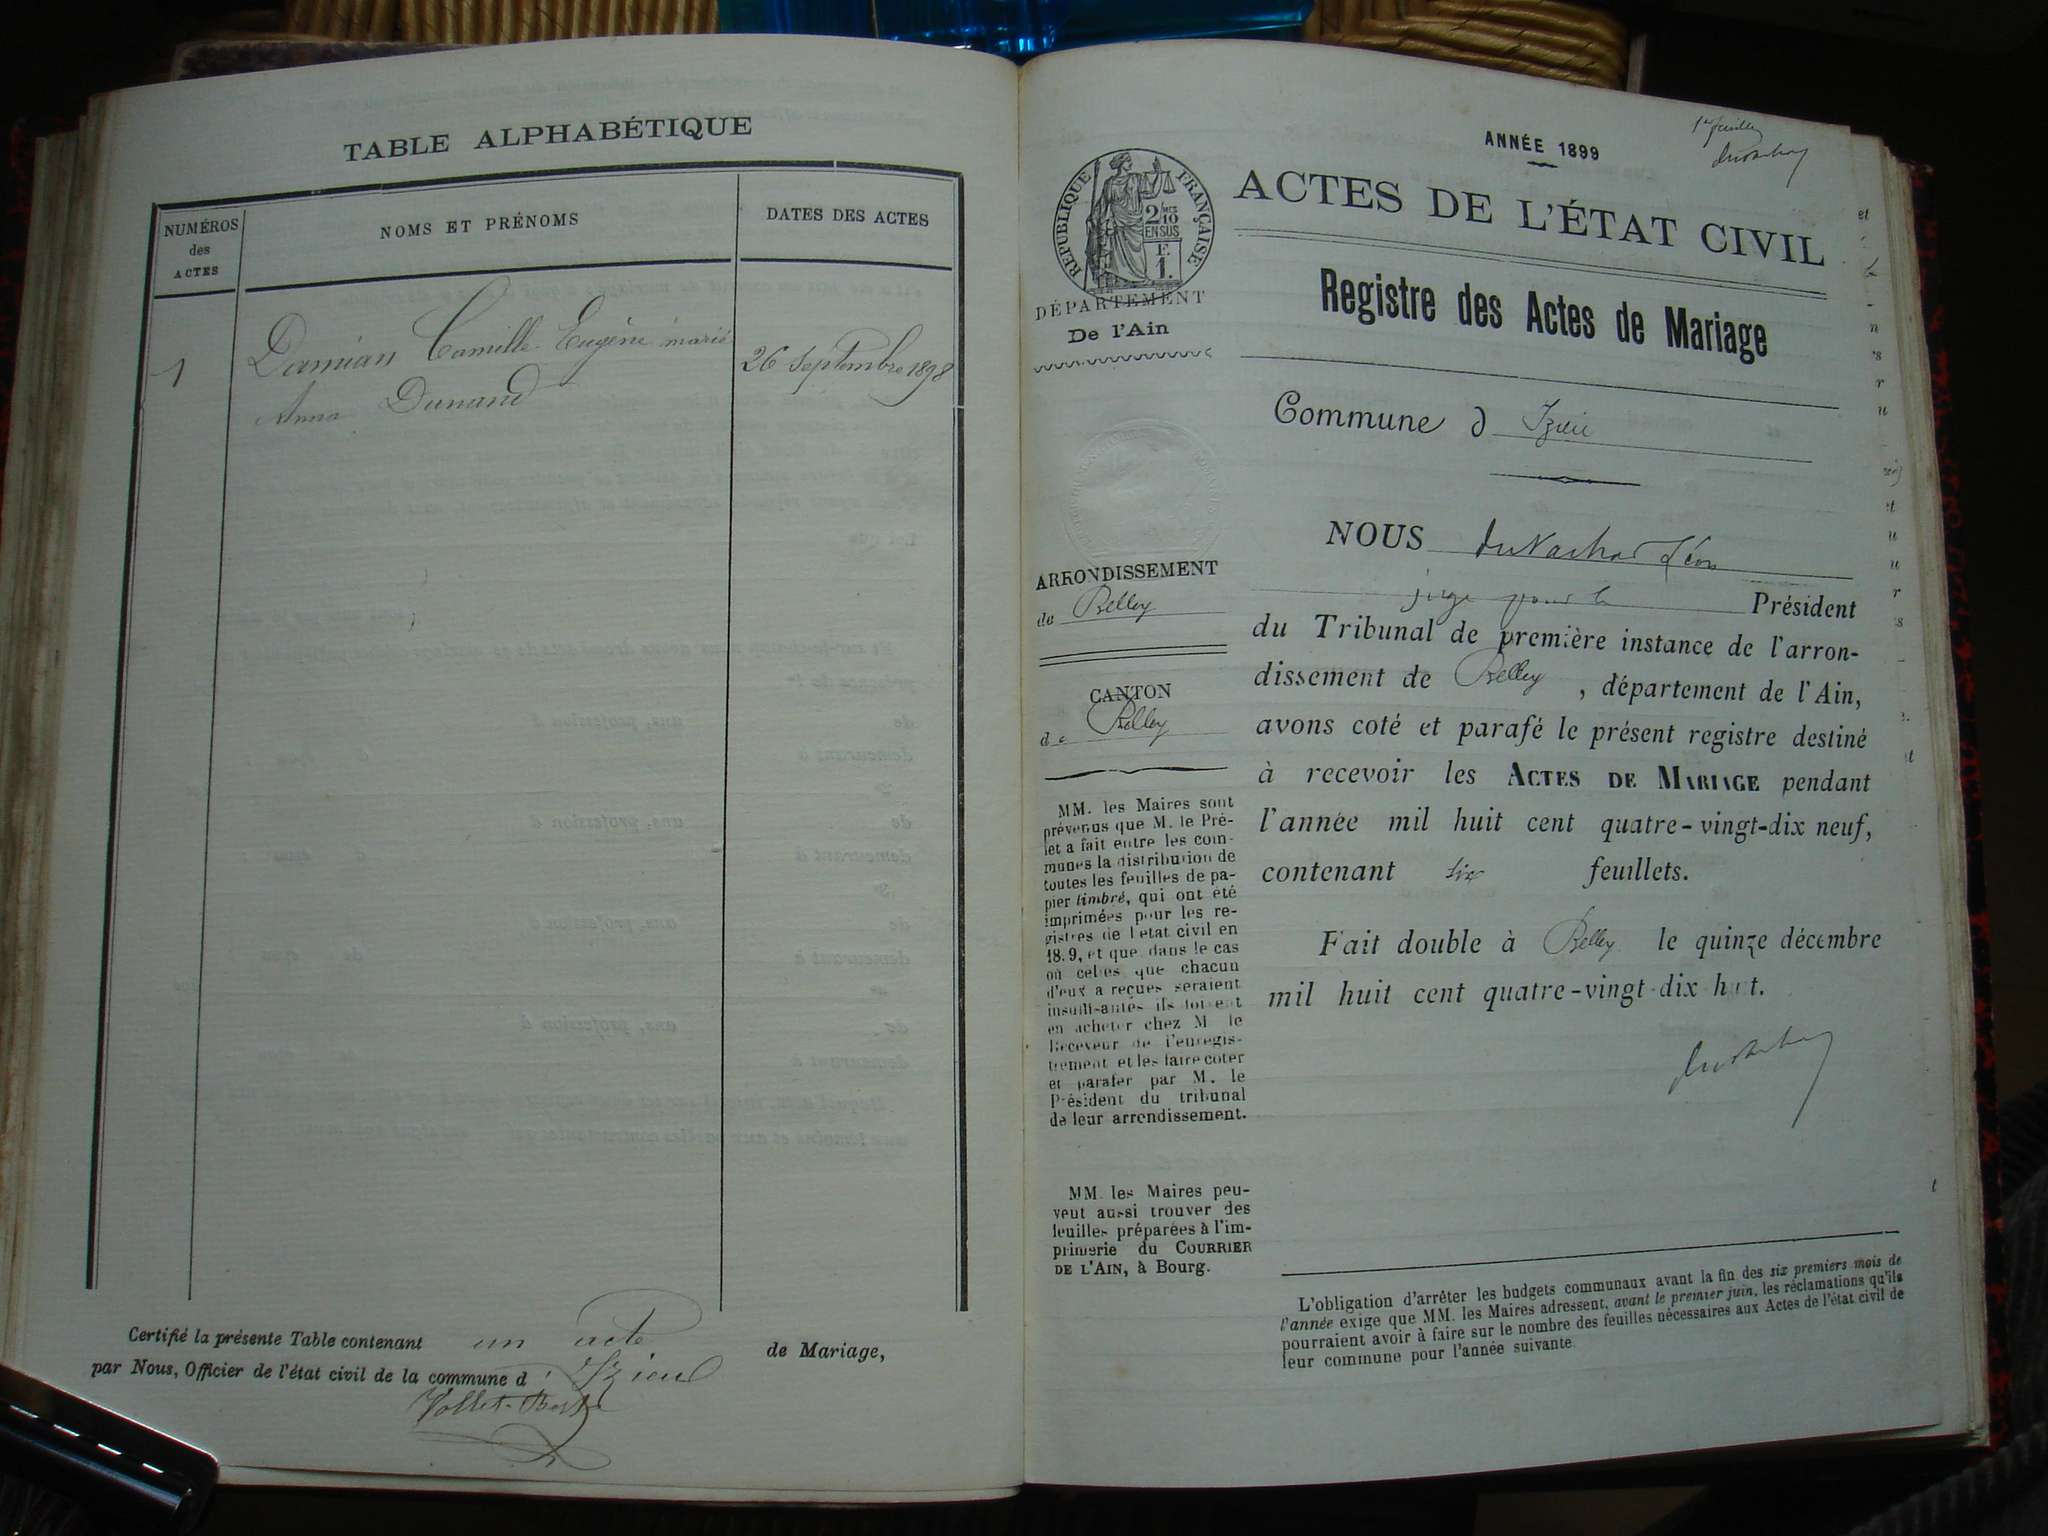 TABLE ALPHABÉTIQUE
NUMÉROS
des
ACTES
NOMS ET PRÉNOMS
DATES DES ACTES
1
Damian Camille Eugène marié
Anna Dunand
26 Septembre 1898
Certifié la présente Table contenant un acte de Mariage,
par Nous, Officier de l'état civil de la commune d' Izieu
ANNÉE 1899
RÉPUBLIQUE FRANÇAISE
2/10
EN SUS
F.
1.
DÉPARTEMENT
De l'Ain
ACTES DE L'ÉTAT CIVIL
Registre des Actes de Mariage
Commune d Izieu
ARRONDISSEMENT
de Belley
CANTON
de Belley
MM. les Maires sont
prévenus que M. le Pré-
fet a fait entre les com-
munes la distribution de
toutes les feuilles de pa-
pier timbré, qui ont été
imprimées pour les re-
gistres de l'état civil en
18.9, et que dans le cas
où celles que chacun
d'eux a reçues seraient
insuffisantes ils doivent
en acheter chez M. le
Receveur de l'enregis-
trement et les faire coter
et parafer par M. le
Président du tribunal
de leur arrondissement.
MM. les Maires peu-
vent aussi trouver des
feuilles préparées à l'im-
primerie du COURRIER
DE L'AIN, à Bourg.
NOUS Léon
juge pour le Président
du Tribunal de première instance de l'arron-
dissement de Belley, département de l'Ain,
avons coté et parafé le présent registre destiné
à recevoir les ACTES DE MARIAGE pendant
l'année mil huit cent quatre-vingt-dix neuf,
contenant six feuillets.
Fait double à Belley le quinze décembre
mil huit cent quatre-vingt-dix huit.
L'obligation d'arrêter les budgets communaux avant la fin des six premiers mois de
l'année exige que MM. les Maires adressent, avant le premier juin, les réclamations qu'ils
pourraient avoir à faire sur le nombre des feuilles nécessaires aux Actes de l'état civil de
leur commune pour l'année suivante.